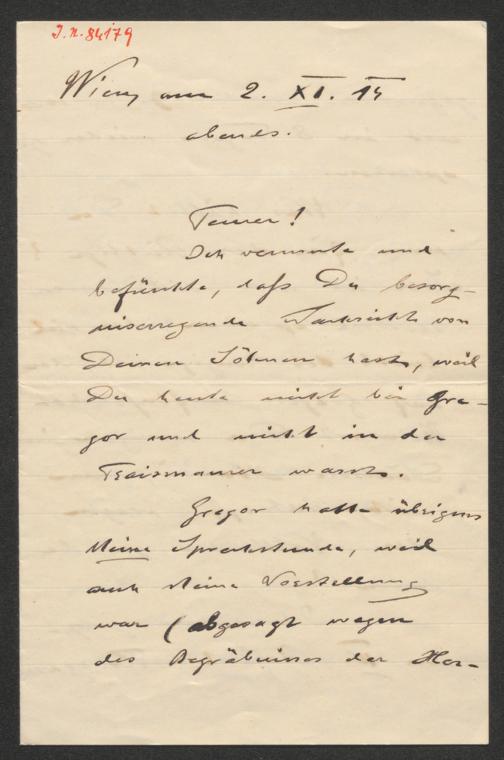 J.N. 84179
Wien, am 2. XI. 14
abends.
Teurer!
Ich vermute und
befürchte, daß Du besorg-
niserregende Nachricht von
Deinen Söhnen hast, weil
Du heute nicht bei Gre-
gor und nicht in der
warst.
Gregor hatte übrigens
keine Sprechstunde, weil
auch keine Vorstellung
war (abgesagt wegen
des Begräbnisses der Her-